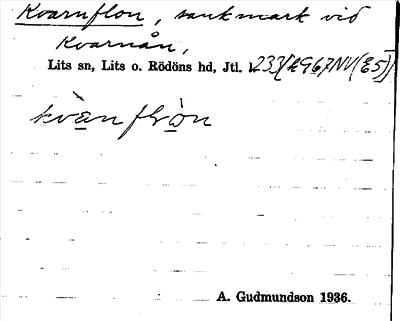 Kvarnflon, sankmark vid
Kvarnån,
Lits sn, Lits o. Rödöns hd, Jtl.
kvànflòn
A. Gudmundson 1936.